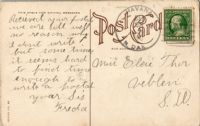 THIS SPACE FOR WRITING MESSAGES
Post Card
HAVANA
N. DAK.
Received your postal
we are all well
no reason why
I dont write
but some times
it seems hard
to find time
enough to
write a postal
your Sis
Freda
Miss Elsie Thor
Veblen
S.D.